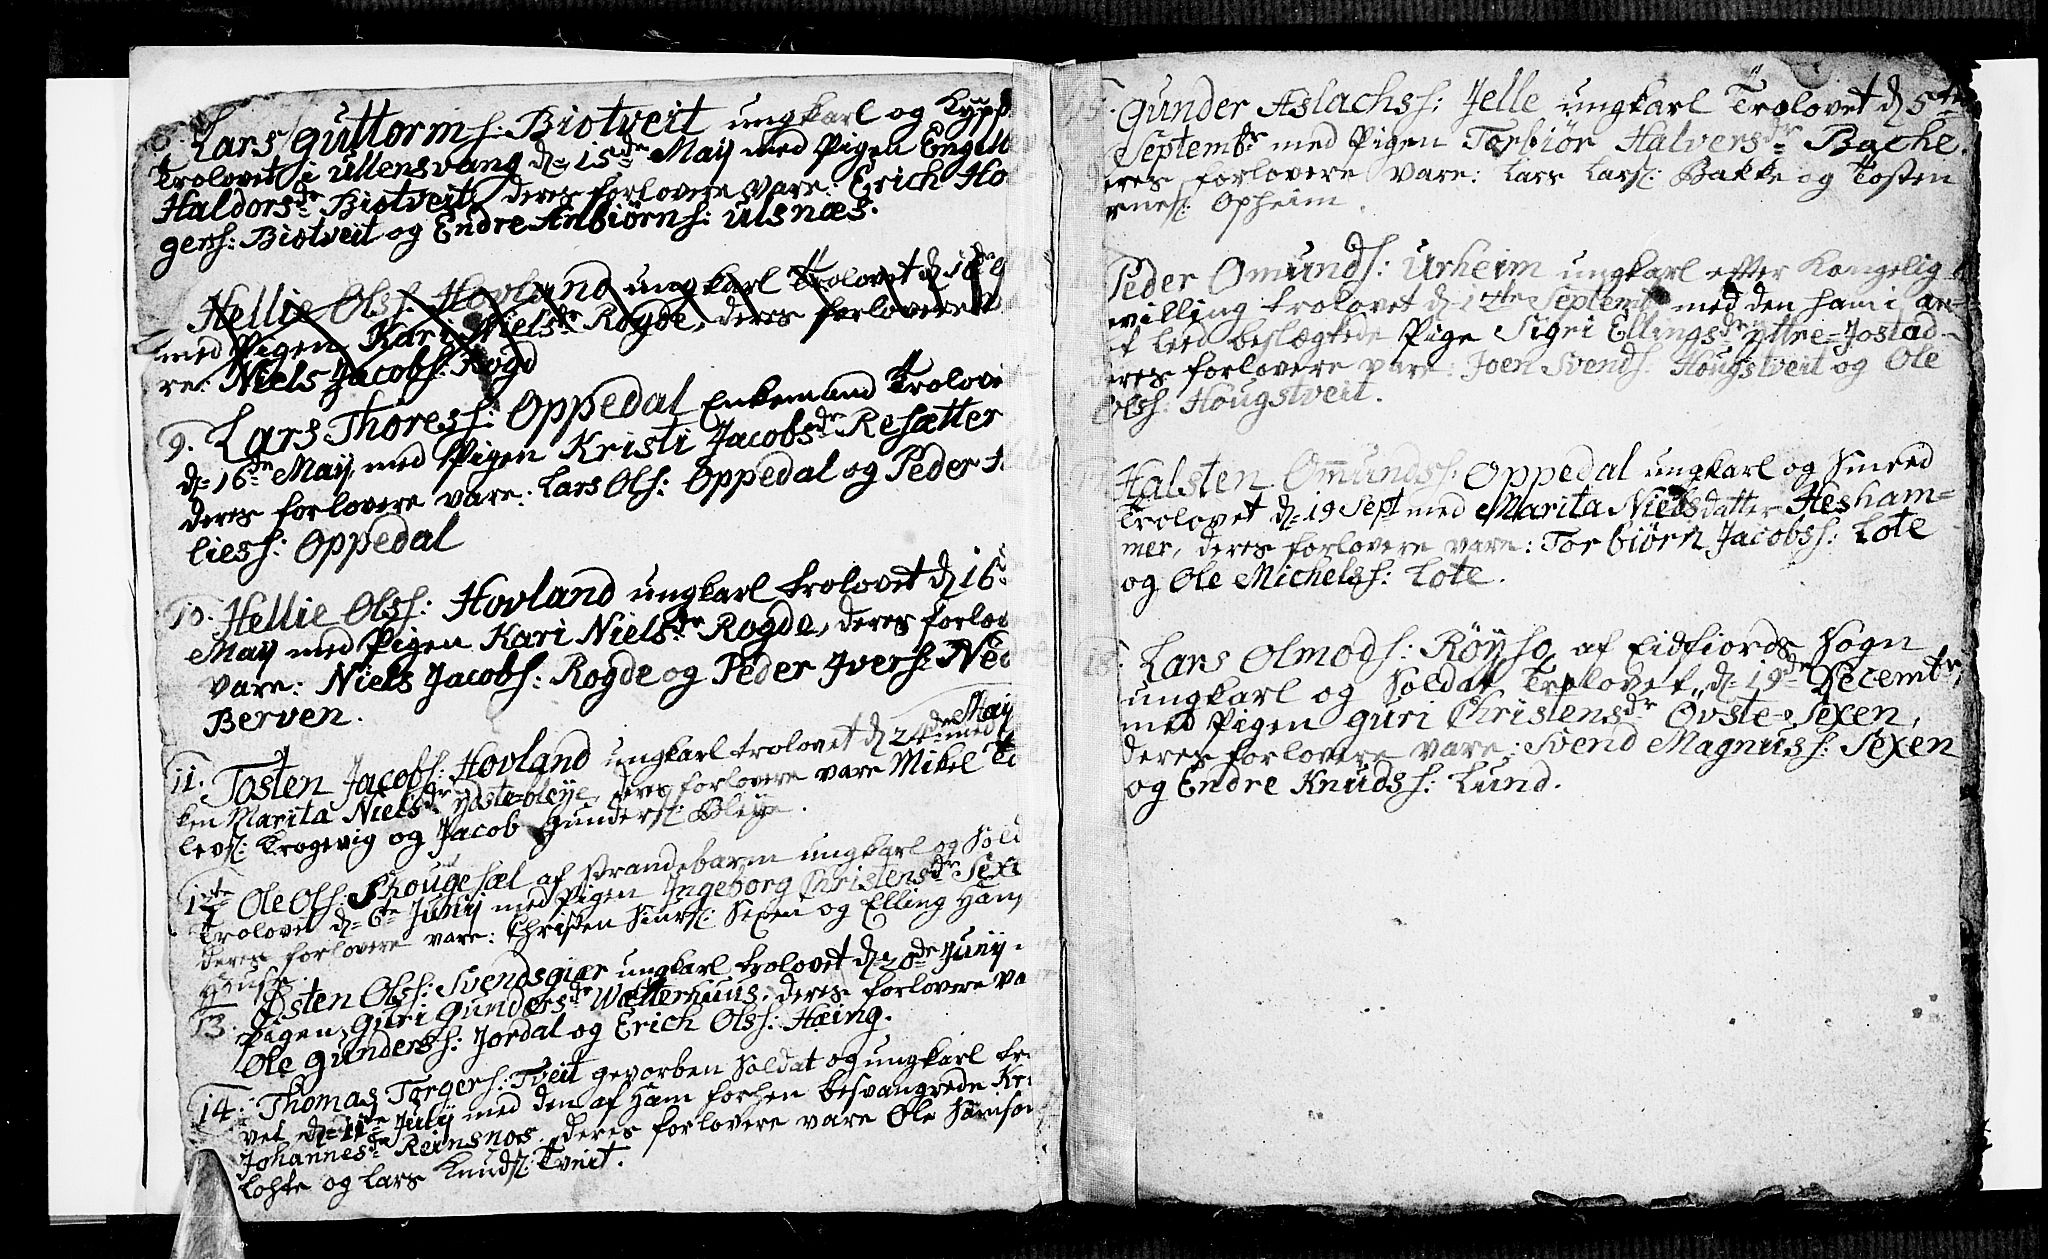 8. Lars Guttorms: Biotveit ungkarl og
Trolovet i Ullensvang d= 15de May med Pigen
Haldorsdr Biotveit, deres forlovere vare: Erich
gers: Biotveit og Endre Anbiørns: Ulsnæs.
Hellie Ols: Hovland ungkarl Trolovet d 16de
med Pigen Kari Nielsdr Rogde, deres forlovere
re: Niels Jacobs: Rogd
9. Lars Thoress: Oppedal Enkemand Trolovet
d= 16de May, med Pigen Kristi Jacobsdr Resætter
deres forlovere vare: Lars Ols: Oppedal og Peder
lies: Oppedal
10. Hellie Ols: Hovland ungkarl trolovet d 16de
May med Pigen Kari Nielsdr Rogde, deres forlov
vare: Niels Jacobs: Rogde og Peder Ivers: Ned
Berven.
11. Tosten Jacobs: Hovland ungkarl trolovet d 24de May med
ken Marita Nielsdr Ydste=bleÿe, deres forlovere vare Mikel
levs: Krogevig og Jacob Gunders: Bleÿe.
12te Ole Ols: Skougesæl af Strandebarm ungkarl og Sold
Trolovet d= 6te Junÿ med Pigen Ingeborg Christensdr Sexe
deres forlovere vare: Christen Siurs: Sexen og Elling Hans
Huuse
13. Østen Ols: Svendsgiær ungkarl trolovet d= 20de Junÿ
Pigen Guri Gundersdr Wætterhuus. deres forlovere va
Ole Gunders: Jordal og Erich Ols: Hæing.
14. Thomas Torgers: Tveit gevorben Soldat og ungkarl tro
vet d= 11te Julÿ med den af ham forhen besvangrede Kri
Johannesdr Reinsnos. deres forlovere vare Ole Samson
Lofte og Lars Knuds: Tveit.
15. Gunder Aslachs: Jelle ungkarl Trolovet d 5te
Septembr med Pigen Torbiør Halversdr Bache.
deres forlovere vare: Lars Lars: Bakke og Tosten
rnes: Opheim.
Peder Omunds: Urheim ungkarl efter Kongelig
villing trolovet d= Septemb med den ham i an=
t leed beslægtede Pige Sigri Ellingsdr Yttre=Jostad
deres forlovere vare: Joen Svends: Hougstveit og Ole
Ols: Hougstveit.
17. Halsten Omunds: Oppedal ungkarl og Smeed
Trolovet d= 19 Sept med Marita Nielsdatter Hesham=
mer, deres forlovere vare: Torbiørn Jacobs: Lote
og Ole Michels: Lote.
18. Lars Olmods: Røÿso af Eidfiords Sogn
ungkarl og Soldat Trolovet d= 19de Decembr,
med Pigen Guri Christensdr Øvste=Sexen,
deres forlovere vare: Svend Magnus: Sexen
og Endre Knuds: Lund.